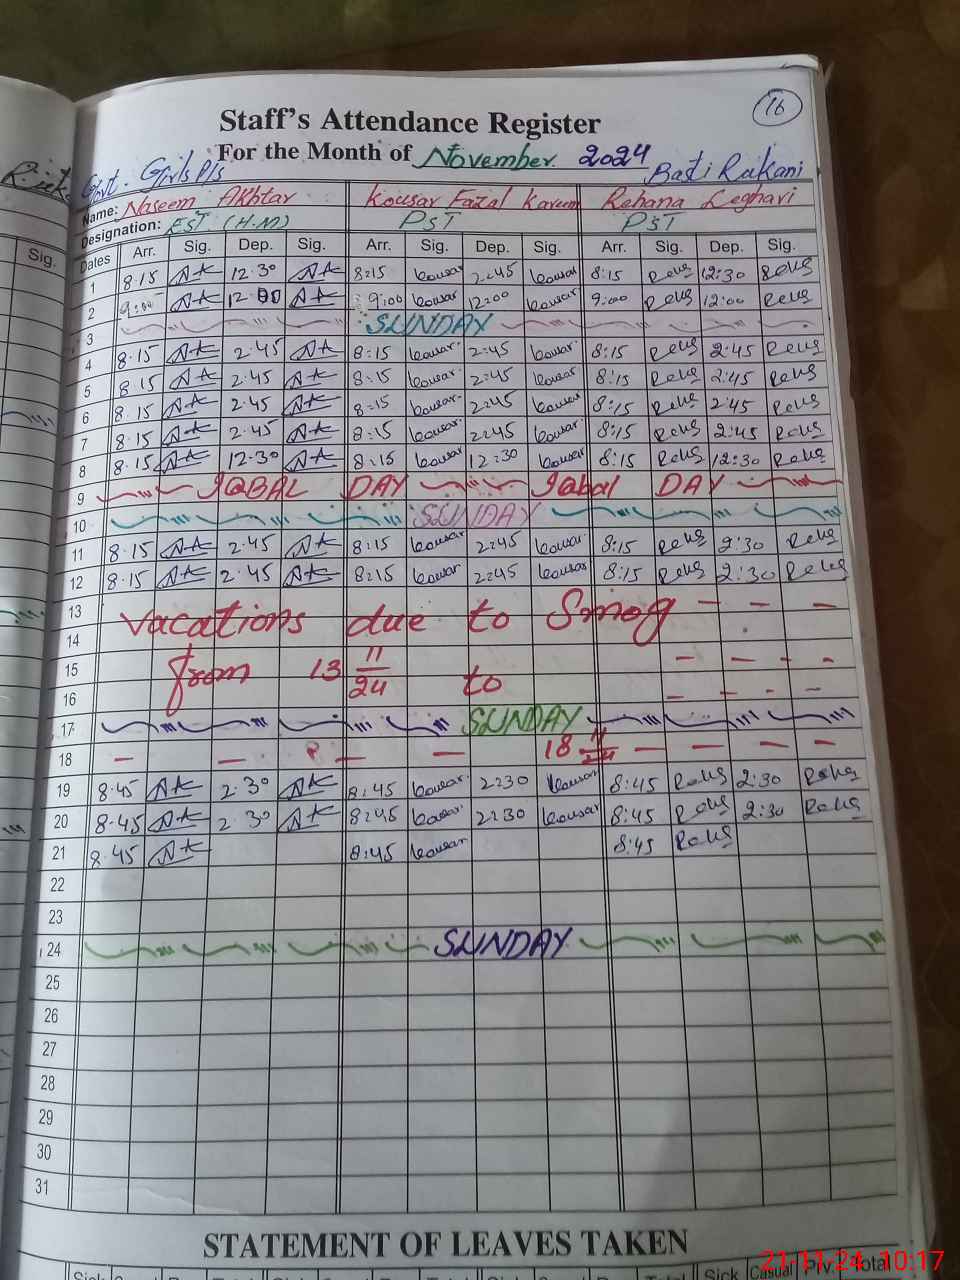 16
Staff's Attendance Register
For the Month of November 2024
Govt. Girls P/s Basti Rukani
Name: Naseem Akhtar Kousar Fazal Kareem Rehana Leghari
Designation: EST (H.M) PST PST
Dates Arr. Sig. Dep. Sig. Arr. Sig. Dep. Sig. Arr. Sig. Dep. Sig.
1 8.15 NA 12.30 NA 8:15 kousar 2:45 kousar 8:15 Rehg 12:30 Rehg
2 9:00 NA 12.00 NA 9:00 kousar 12:00 kousar 9:00 Rehg 12:00 Rehg
3 SUNDAY
4 8.15 NA 2.45 NA 8:15 kousar 2:45 kousar 8:15 Rehg 2:45 Rehg
5 8.15 NA 2.45 NA 8:15 kousar 2:45 kousar 8:15 Rehg 2:45 Rehg
6 8.15 NA 2.45 NA 8:15 kousar 2:45 kousar 8:15 Rehg 2:45 Rehg
7 8.15 NA 2.45 NA 8:15 kousar 2:45 kousar 8:15 Rehg 2:45 Rehg
8 8.15 NA 12.30 NA 8:15 kousar 12:30 kousar 8:15 Rehg 12:30 Rehg
9 IQBAL DAY Iqbal DAY
10 SUNDAY
11 8.15 NA 2.45 NA 8:15 kousar 2:45 kousar 8:15 Rehg 2:30 Rehg
12 8.15 NA 2.45 NA 8:15 kousar 2:45 kousar 8:15 Rehg 2:30 Rehg
13 vacations due to Smog
14
15 from 13 11/24 to
16
17 SUNDAY
18 18 11/24
19 8.45 NA 2.30 NA 8:45 kousar 2:30 kousar 8:45 Rehg 2:30 Rehg
20 8.45 NA 2.30 NA 8:45 kousar 2:30 kousar 8:45 Rehg 2:30 Rehg
21 8.45 NA 8:45 kousar 8:45 Rehg
22
23
24 SUNDAY
25
26
27
28
29
30
31
STATEMENT OF LEAVES TAKEN
Sick Casual Priv. Total
Sig.
21-11-24 10:17